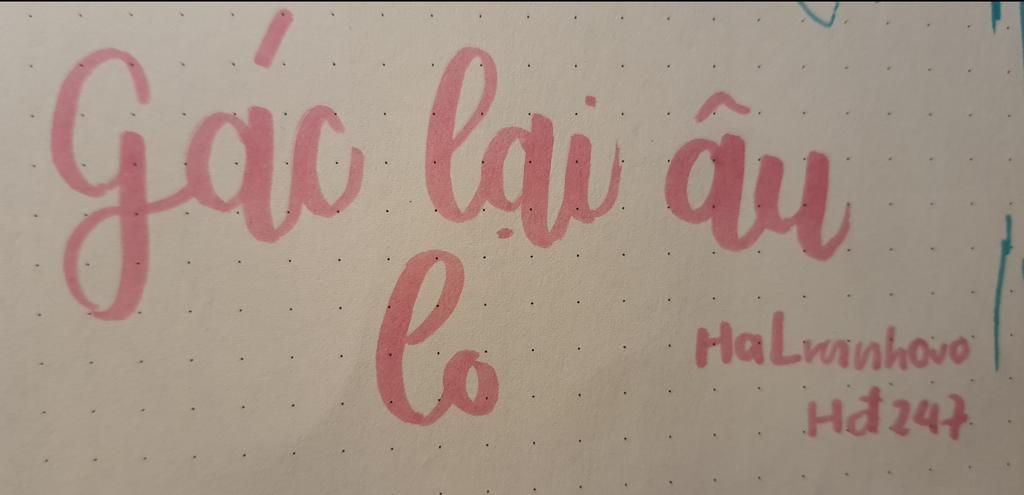 Gác lại âu
lo
Hđ247